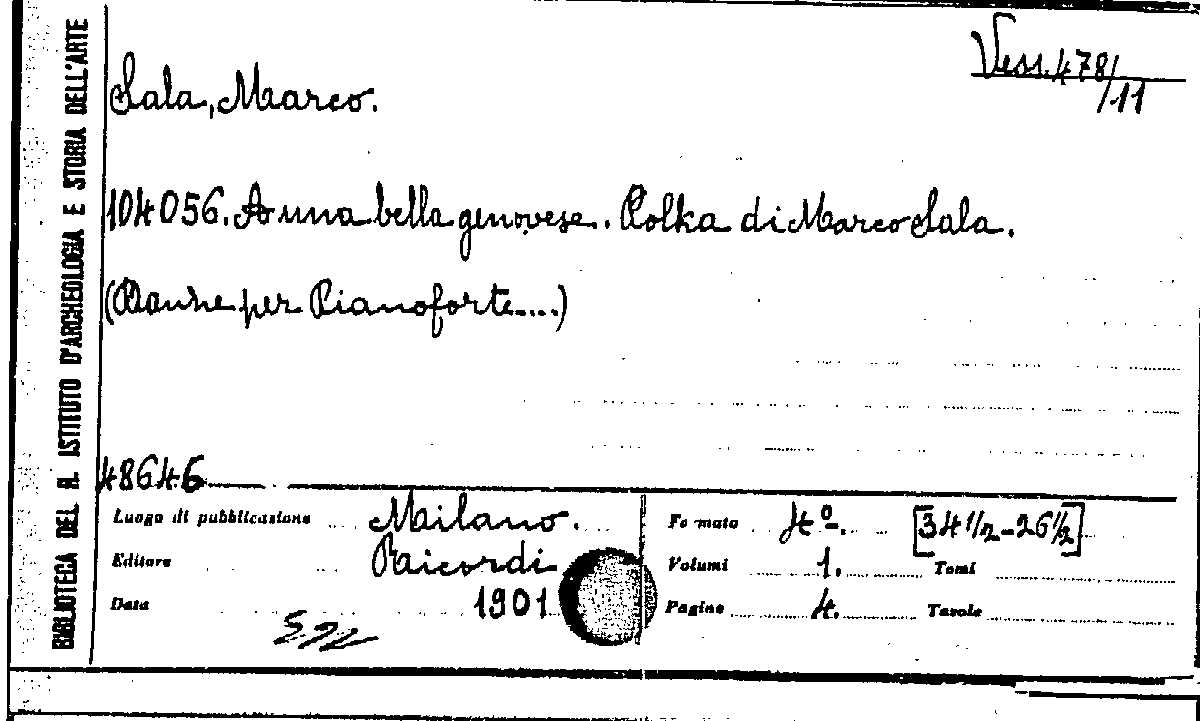 BIBLIOTECA DEL R. ISTITUTO D'ARCHEOLOGIA E STORIA DELL'ARTE
Vess. 478/11
Sala, Marco.
104056. A una bella genovese. Polka di Marco Sala.
(Danze per Pianoforte....)
48646
Luogo di pubblicazione Milano.
Editore Ricordi
Data 1901
Formato 4º. [34 1/2 - 26 1/2]
Volumi 1. Tomi
Pagine 4. Tavole